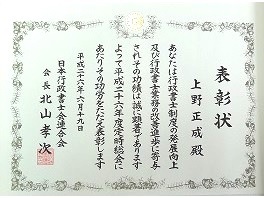 表彰状
上野正成 殿
あなたは行政書士制度の発展向上
及び行政書士業務の改善進歩に寄与
されその功績は誠に顕著であります
よって平成二十六年度定時総会に
あたりその功労をたたえ表彰します
平成二十六年六月十九日
日本行政書士会連合会
会長 北山孝次